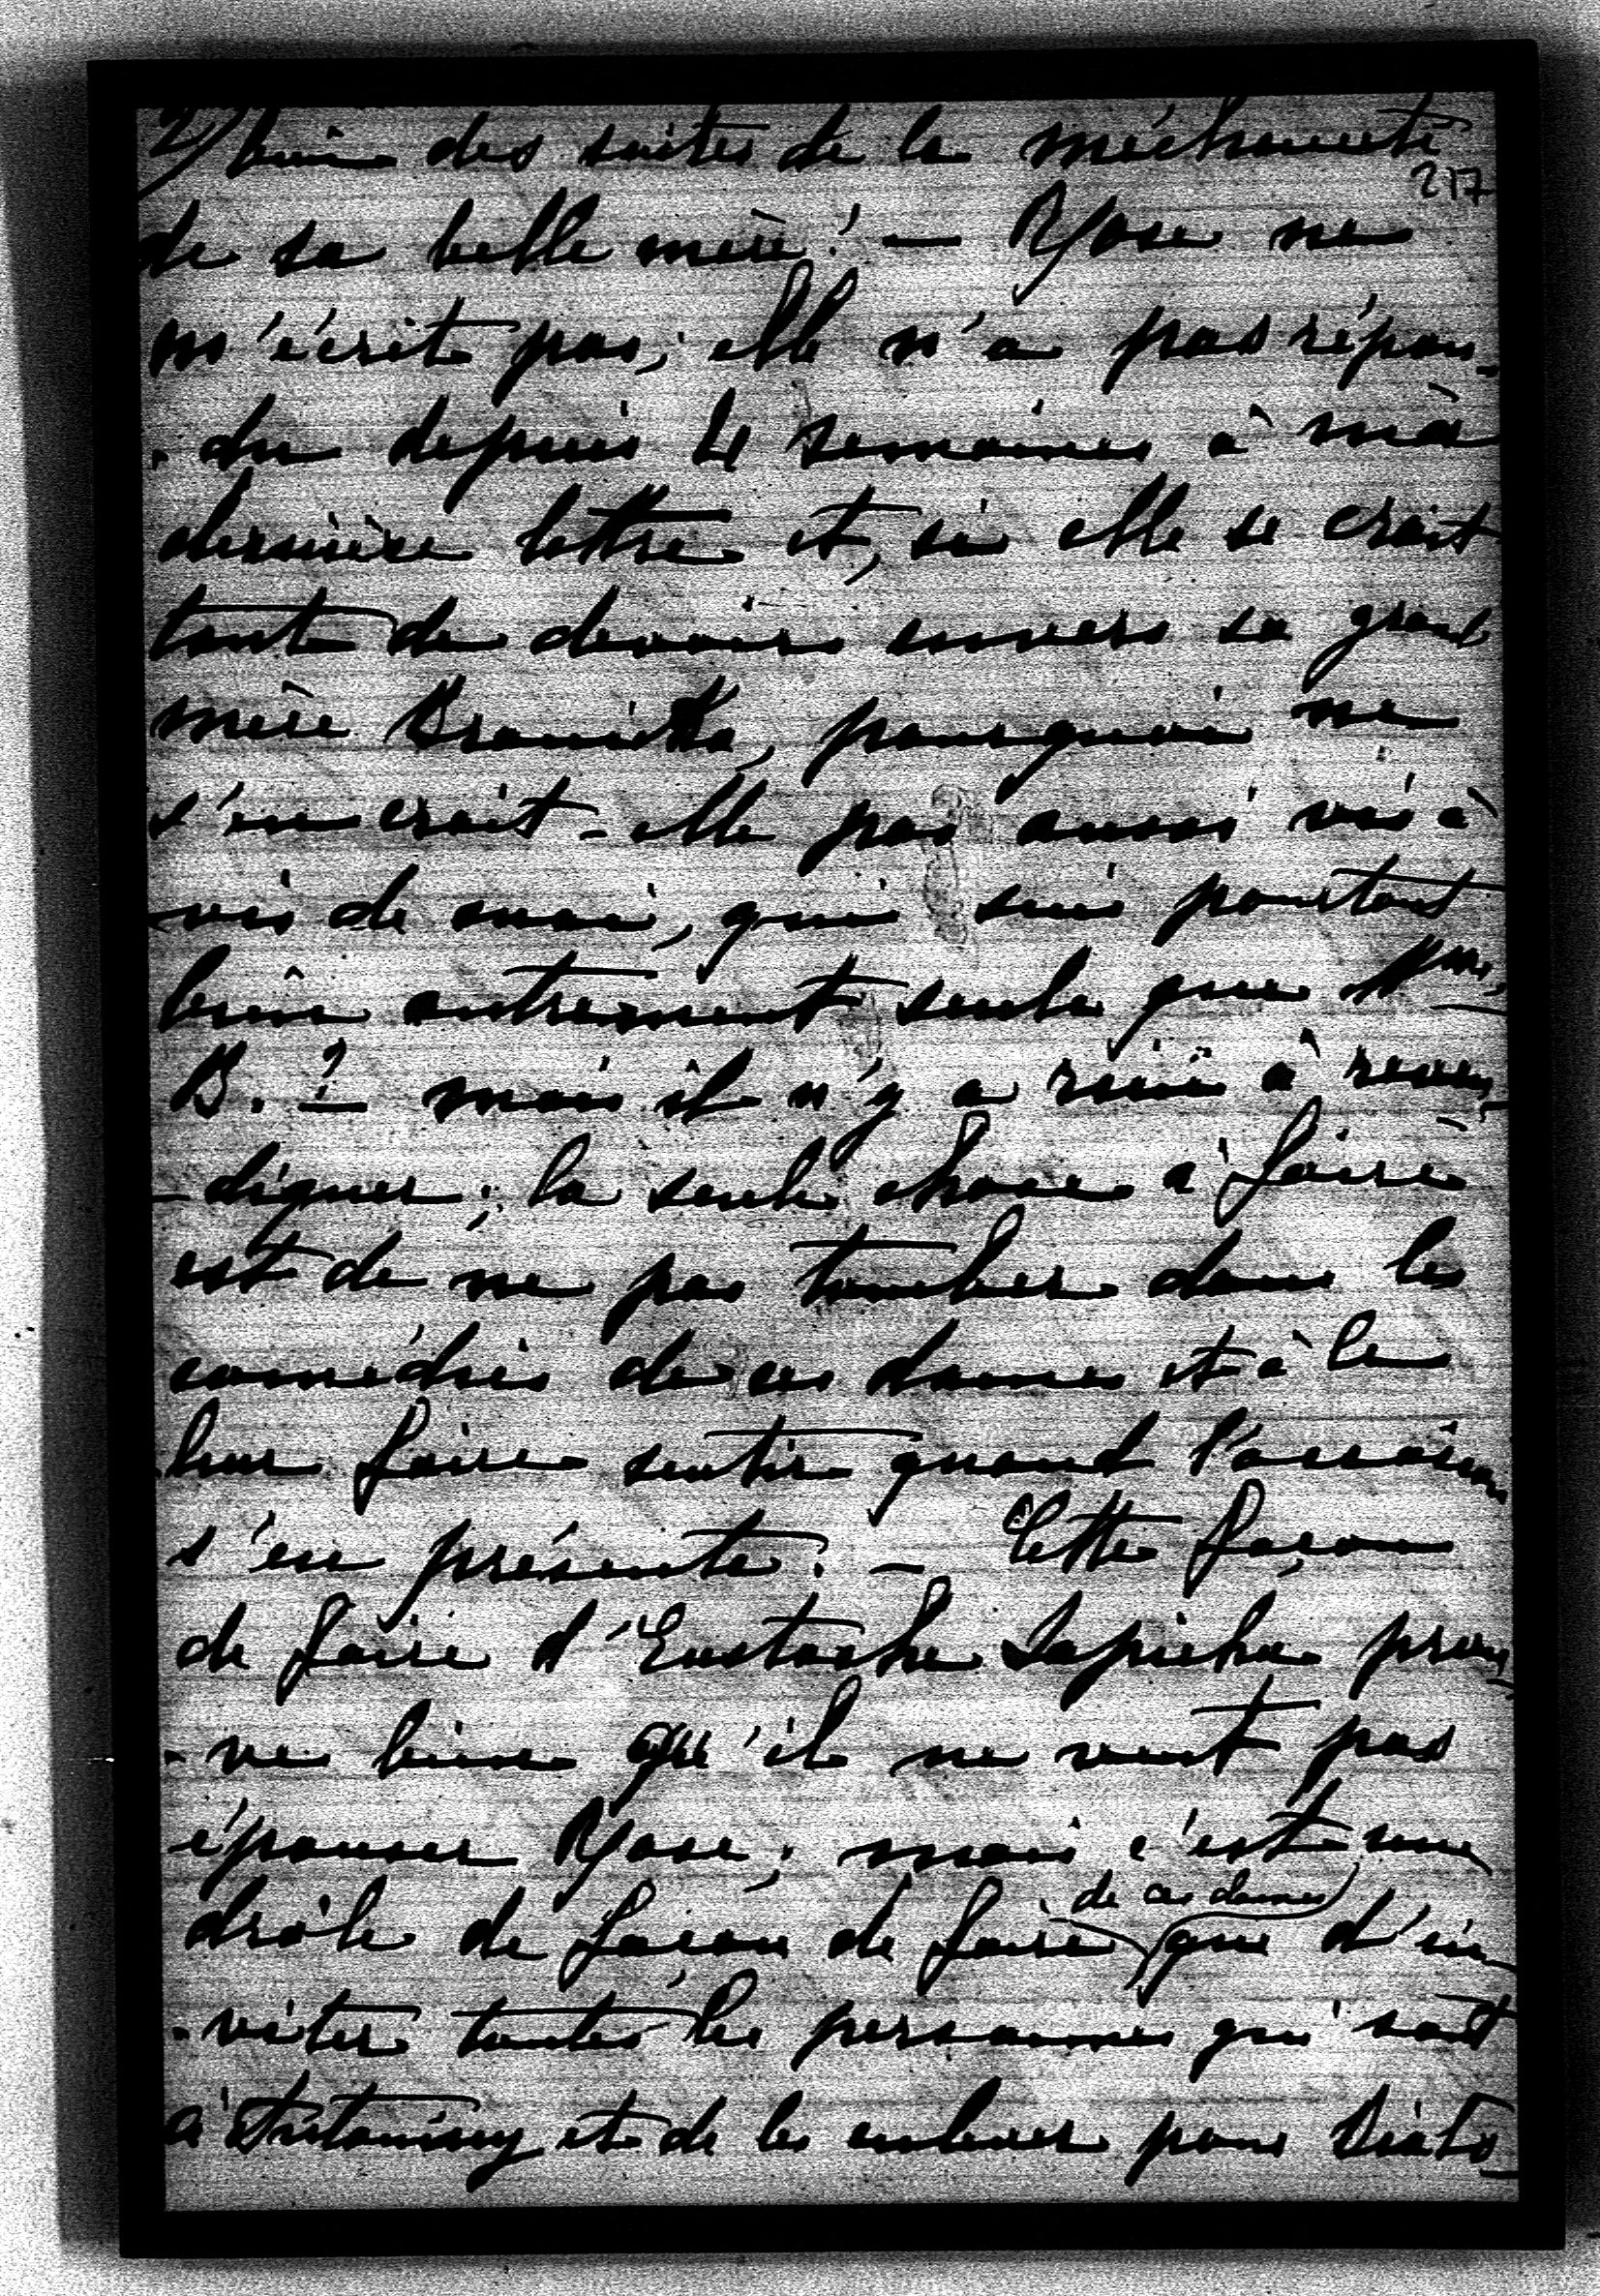 2) bien des suites de la méchanceté
217
de sa belle mère! — Rose ne
m'écrit pas; elle n'a pas répon-
-du depuis 4 semaines à ma
dernière lettre et, si elle se croit
tant de devoirs envers sa grand
mère Branicka, pourquoi ne
s'en croit-elle pas aussi vis à
vis de moi, qui suis pourtant
bien autrement seule que Mme
B.? — mais il n'y a rien à reven-
-diquer; la seule chose à faire
est de ne pas tomber dans les
comédies de ces dames et à le
leur faire sentir quand l'occasion
s'en présente. — Cette façon
de faire d'Eustache Sapieha prou-
-ve bien qu'il ne veut pas
épouser Rose; mais c'est une
drôle de façon de faire de ces dames que d'in-
-viter toutes les personnes qui sont
à Antoniny et de les enlever pour Biało-